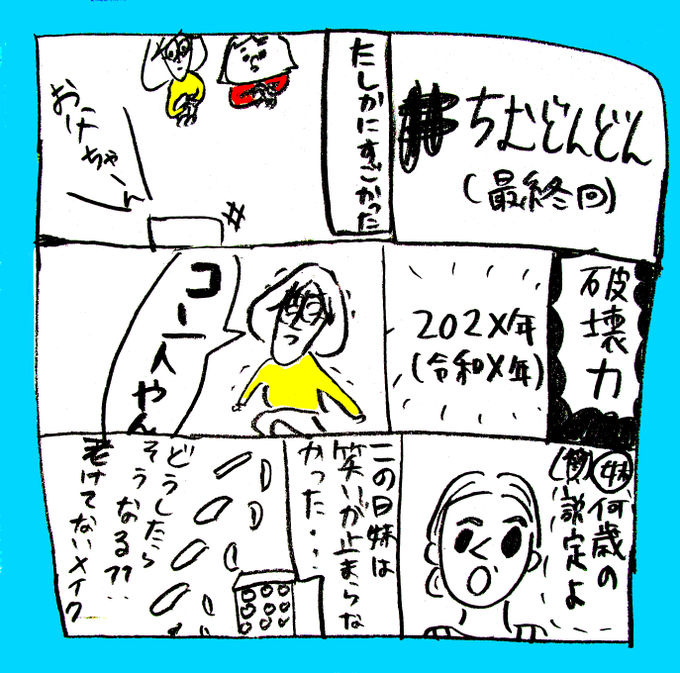 #ちむどんどん
(最終回)
たしかにすごかった
破壊力
202X年
(令和X年)
やん
妹
何歳の
設定よ
この日妹は
笑いが止まらな
かった・・
どうしたら
そうなる??
老けてないメイク